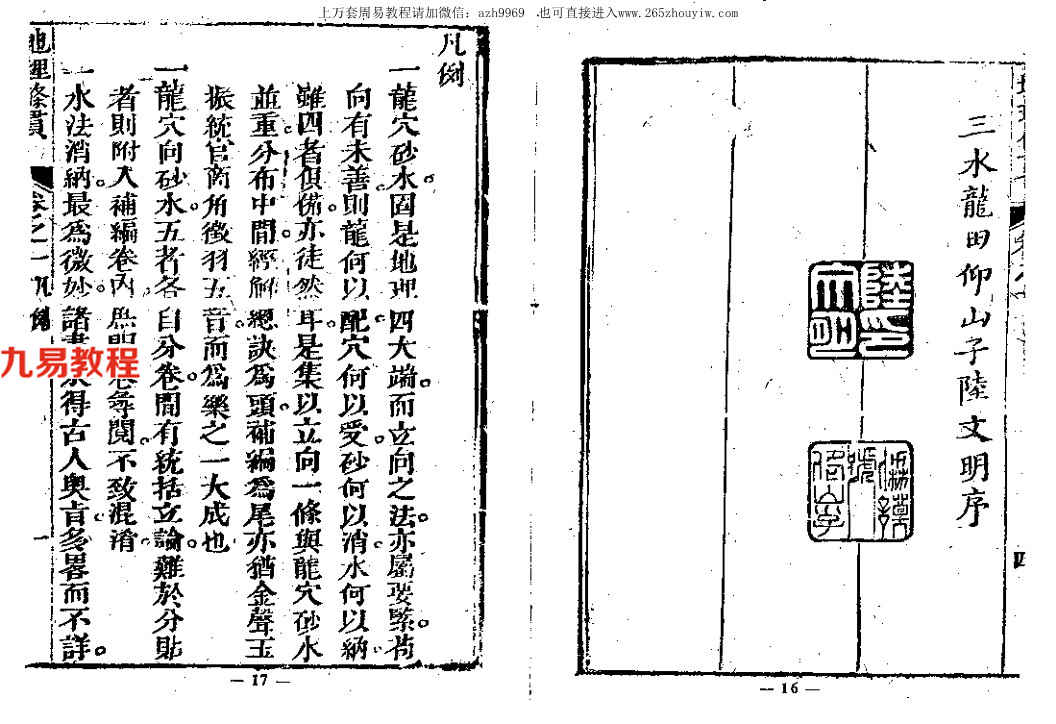 上万套周易教程请加微信：azh9969 .也可直接进入www.265zhouyiw.com
三水龍田仰山子陸文明序
陸印文明
四
— 16 —
凡例
一龍穴砂水。固是地理四大端。而立向之法。亦屬要緊。苟
向有未善。則龍何以配。穴何以受。砂何以消。水何以納。
雖四者俱備。亦徒然耳。是集以立向一條與龍穴砂水
並重。分布中間。經解總訣為頭。補編為尾。亦猶金聲玉
振統宮商角徵羽五音。而為樂之一大成也
一龍穴向砂水。五者各自分卷。間有統括立論。難於分貼
者則附入補編卷內尋閱。不致混淆。
一水法消納。最為微妙。諸書得古人奧旨。多畧而不詳。
地理條貫 卷之一 凡例 一
— 17 —
九易教程